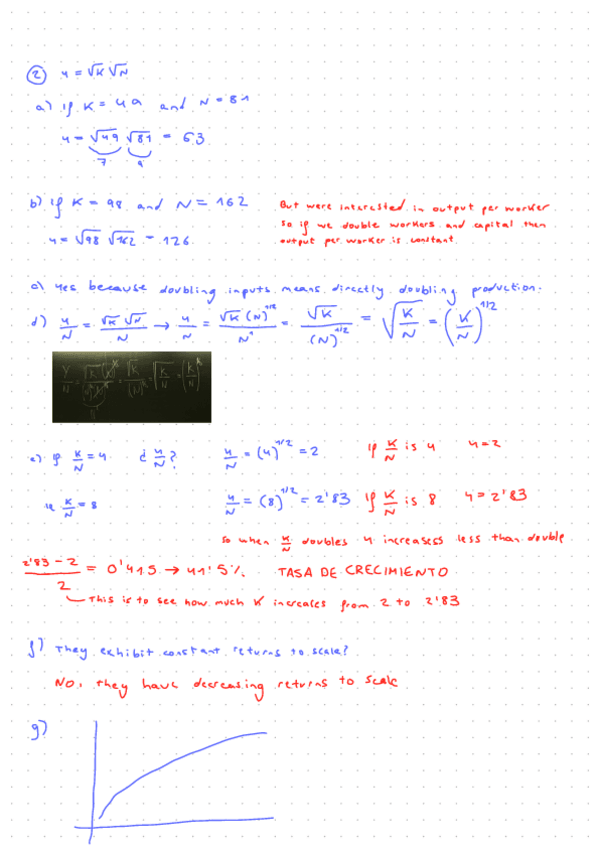 2 y = √K √N
a) if K = 49 and N = 81
y = √49 √81 = 63
7 9
b) if K = 98 and N = 162
y = √98 √162 = 126
But were interested in output per worker
so if we double workers and capital then
output per worker is constant
c) Yes because doubling inputs means directly doubling production.
d) y/N = √K √N / N → y/N = √K (N)^1/2 / N^1 = √K / (N)^1/2 = √(K/N) = (K/N)^1/2
e) if K/N = 4 ¿ y/N? y/N = (4)^1/2 = 2 if K/N is 4 y = 2
K/N = 8 y/N = (8)^1/2 = 2'83 if K/N is 8 y = 2'83
so when K/N doubles y increasess less than double
2'83 - 2 / 2 = 0'415 → 41'5% TASA DE CRECIMIENTO
This is to see how much K increases from 2 to 2'83
f) They exhibit constant returns to scale?
NO, they have decreasing returns to scale
g)